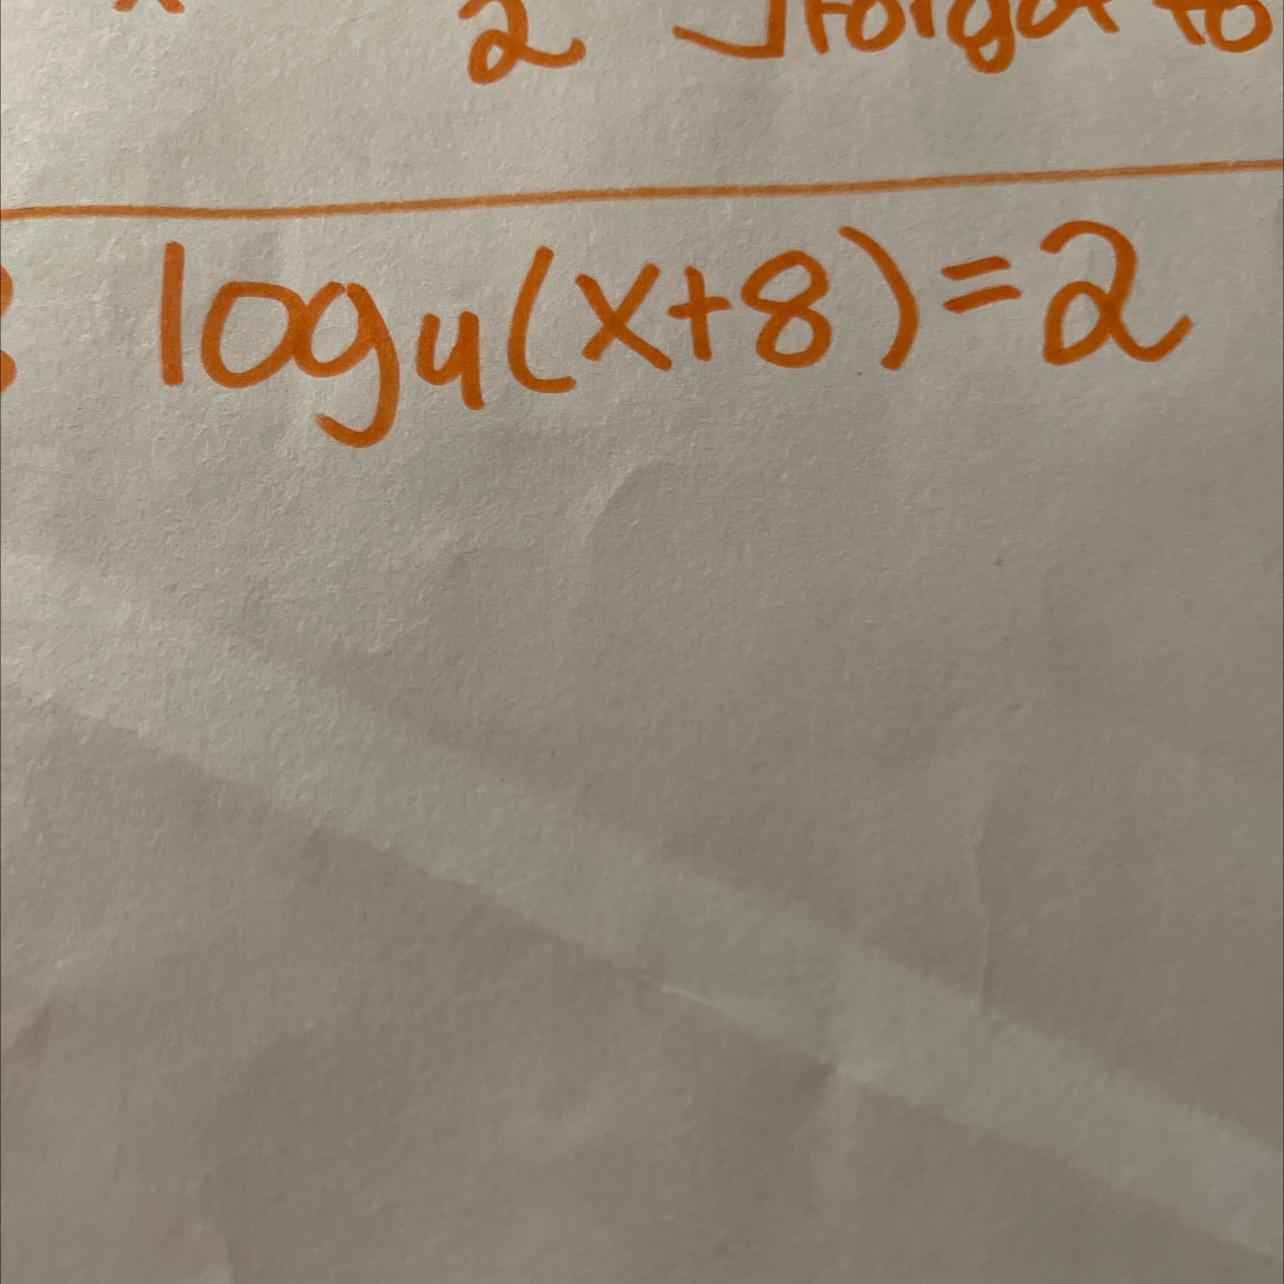 2 forgot to
log₄(x+8)=2